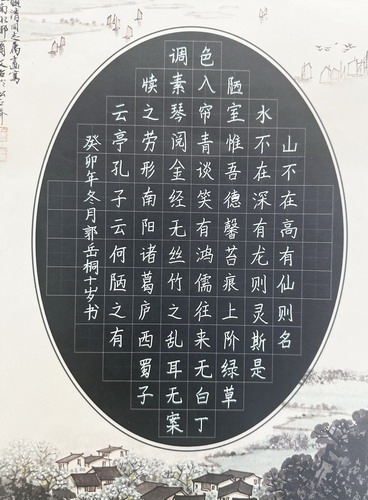 山不在高有仙则名
水不在深有龙则灵斯是
陋室惟吾德馨苔痕上阶绿草
色入帘青谈笑有鸿儒往来无白丁
调素琴阅金经无丝竹之乱耳无案
牍之劳形南阳诸葛庐西蜀子
云亭孔子云何陋之有
癸卯年冬月郭岳桐十岁书